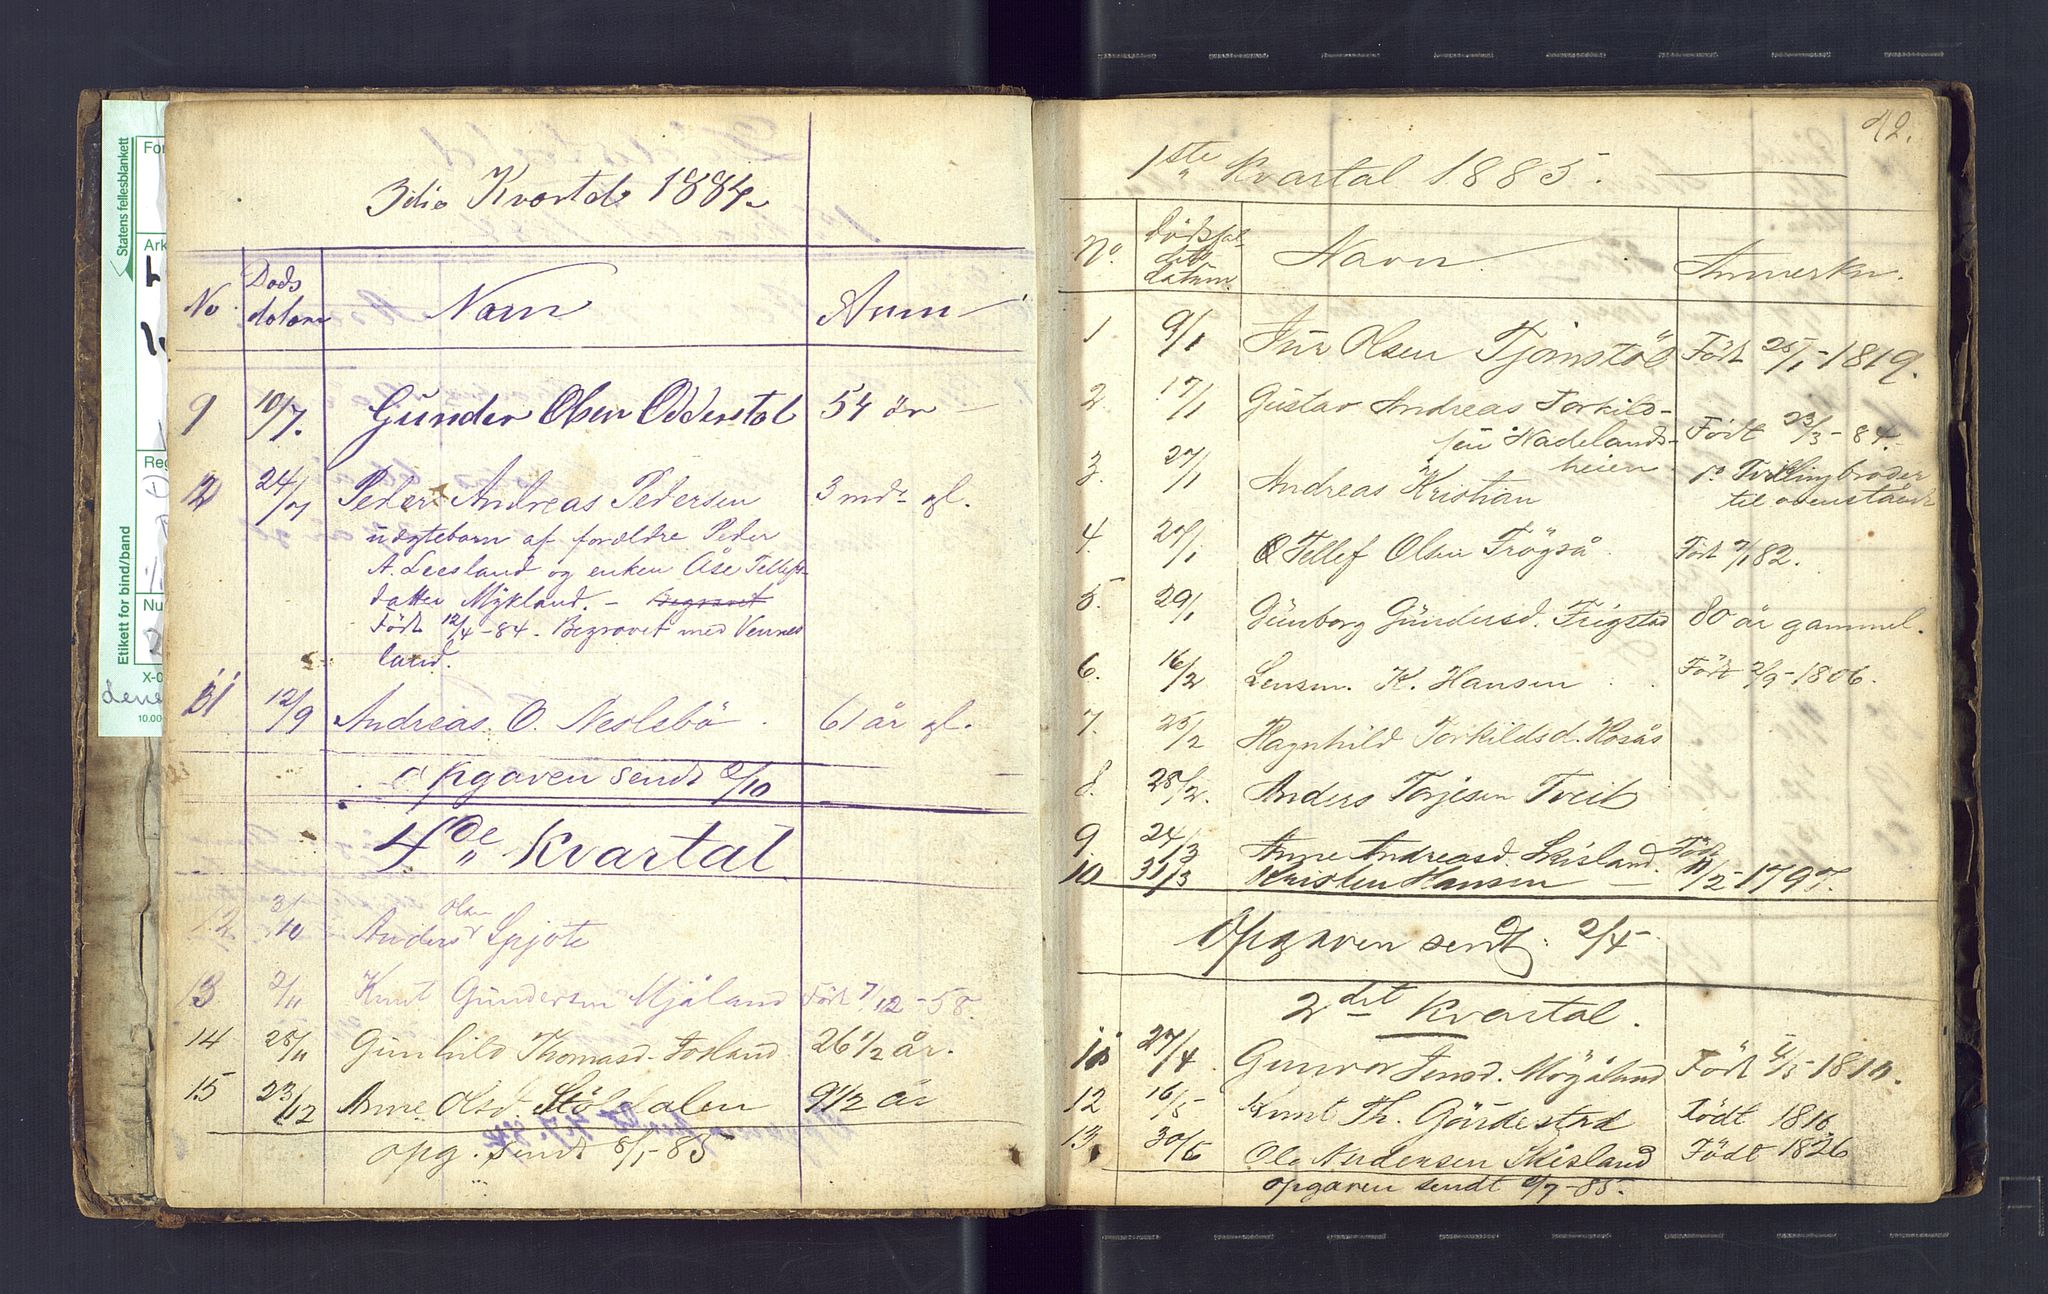 Statens fellesblankett
Etikett for bind/bånd
For
Ark
Reg
Nu
X-0
10.00
3die Kvartal 1884
No
Døds
datum
Navn
Anm
9 10/7. Gunder Olsen Odderstøl 54 år
12 24/7 Peder Andreas Pedersen 3 mdr gl.
uægtebarn af forældre Peder
A. Leesland og enken Åse Tellefs-
datter Mykland. - Begravet
Født 12/4-84. Begravet med Vennes
land.
11 12/9 Andreas O. Neslebö 61 år gl.
Opgaven sendt 2/10
4de Kvartal
12 3/10 Anders Olsen Spjote
13 2/11 Knut Gundersen Mjåland Født 7/12-58.
14 25/11 Gunhild Thomasd. Fosland 26 1/2 år.
15 23/12 Anne Olsd. Stöldalen 91/2 år
opg. sendt 8/1-85
42.
1ste Kvartal 1885.
No.
Dödsfal-
dets
datum.
Navn
Anmerkn.
1 9/1 Jens Olsen Tjomstöl Född 25/1-1819.
2. 17/1 Gustav Andreas Torkild-
sen Hadelands-
heien Född 23/3-84.
3. 27/1 Andreas Kristian Tvillingbroder
til ovenstående
4. 27/1 Tellef Olsen Trögså Född 7/1 82.
5. 29/1 Gunborg Gundersd. Frigstad 80 år gammel.
6. 16/2 Lensm. K. Hansen Född 2/9-1806.
7. 25/2 Ragnhild Torkildsd. Rosås
8. 28/2. Anders Torjesen Tveit
9 24/3 Anne Andreasd. Skisland. Född
10 31/3 Kristen Hansen 11/2-1797.
Opgaven sendt. 2/4
2det Kvartal.
11 27/4 Gunvor Jensd. Mögåland Född 5/3-1810.
12 16/5 Knut Th. Gaudestad Född 1816
13. 30/6 Ole Andersen Skisland Född 1826
opgaven sendt 6/7-85.